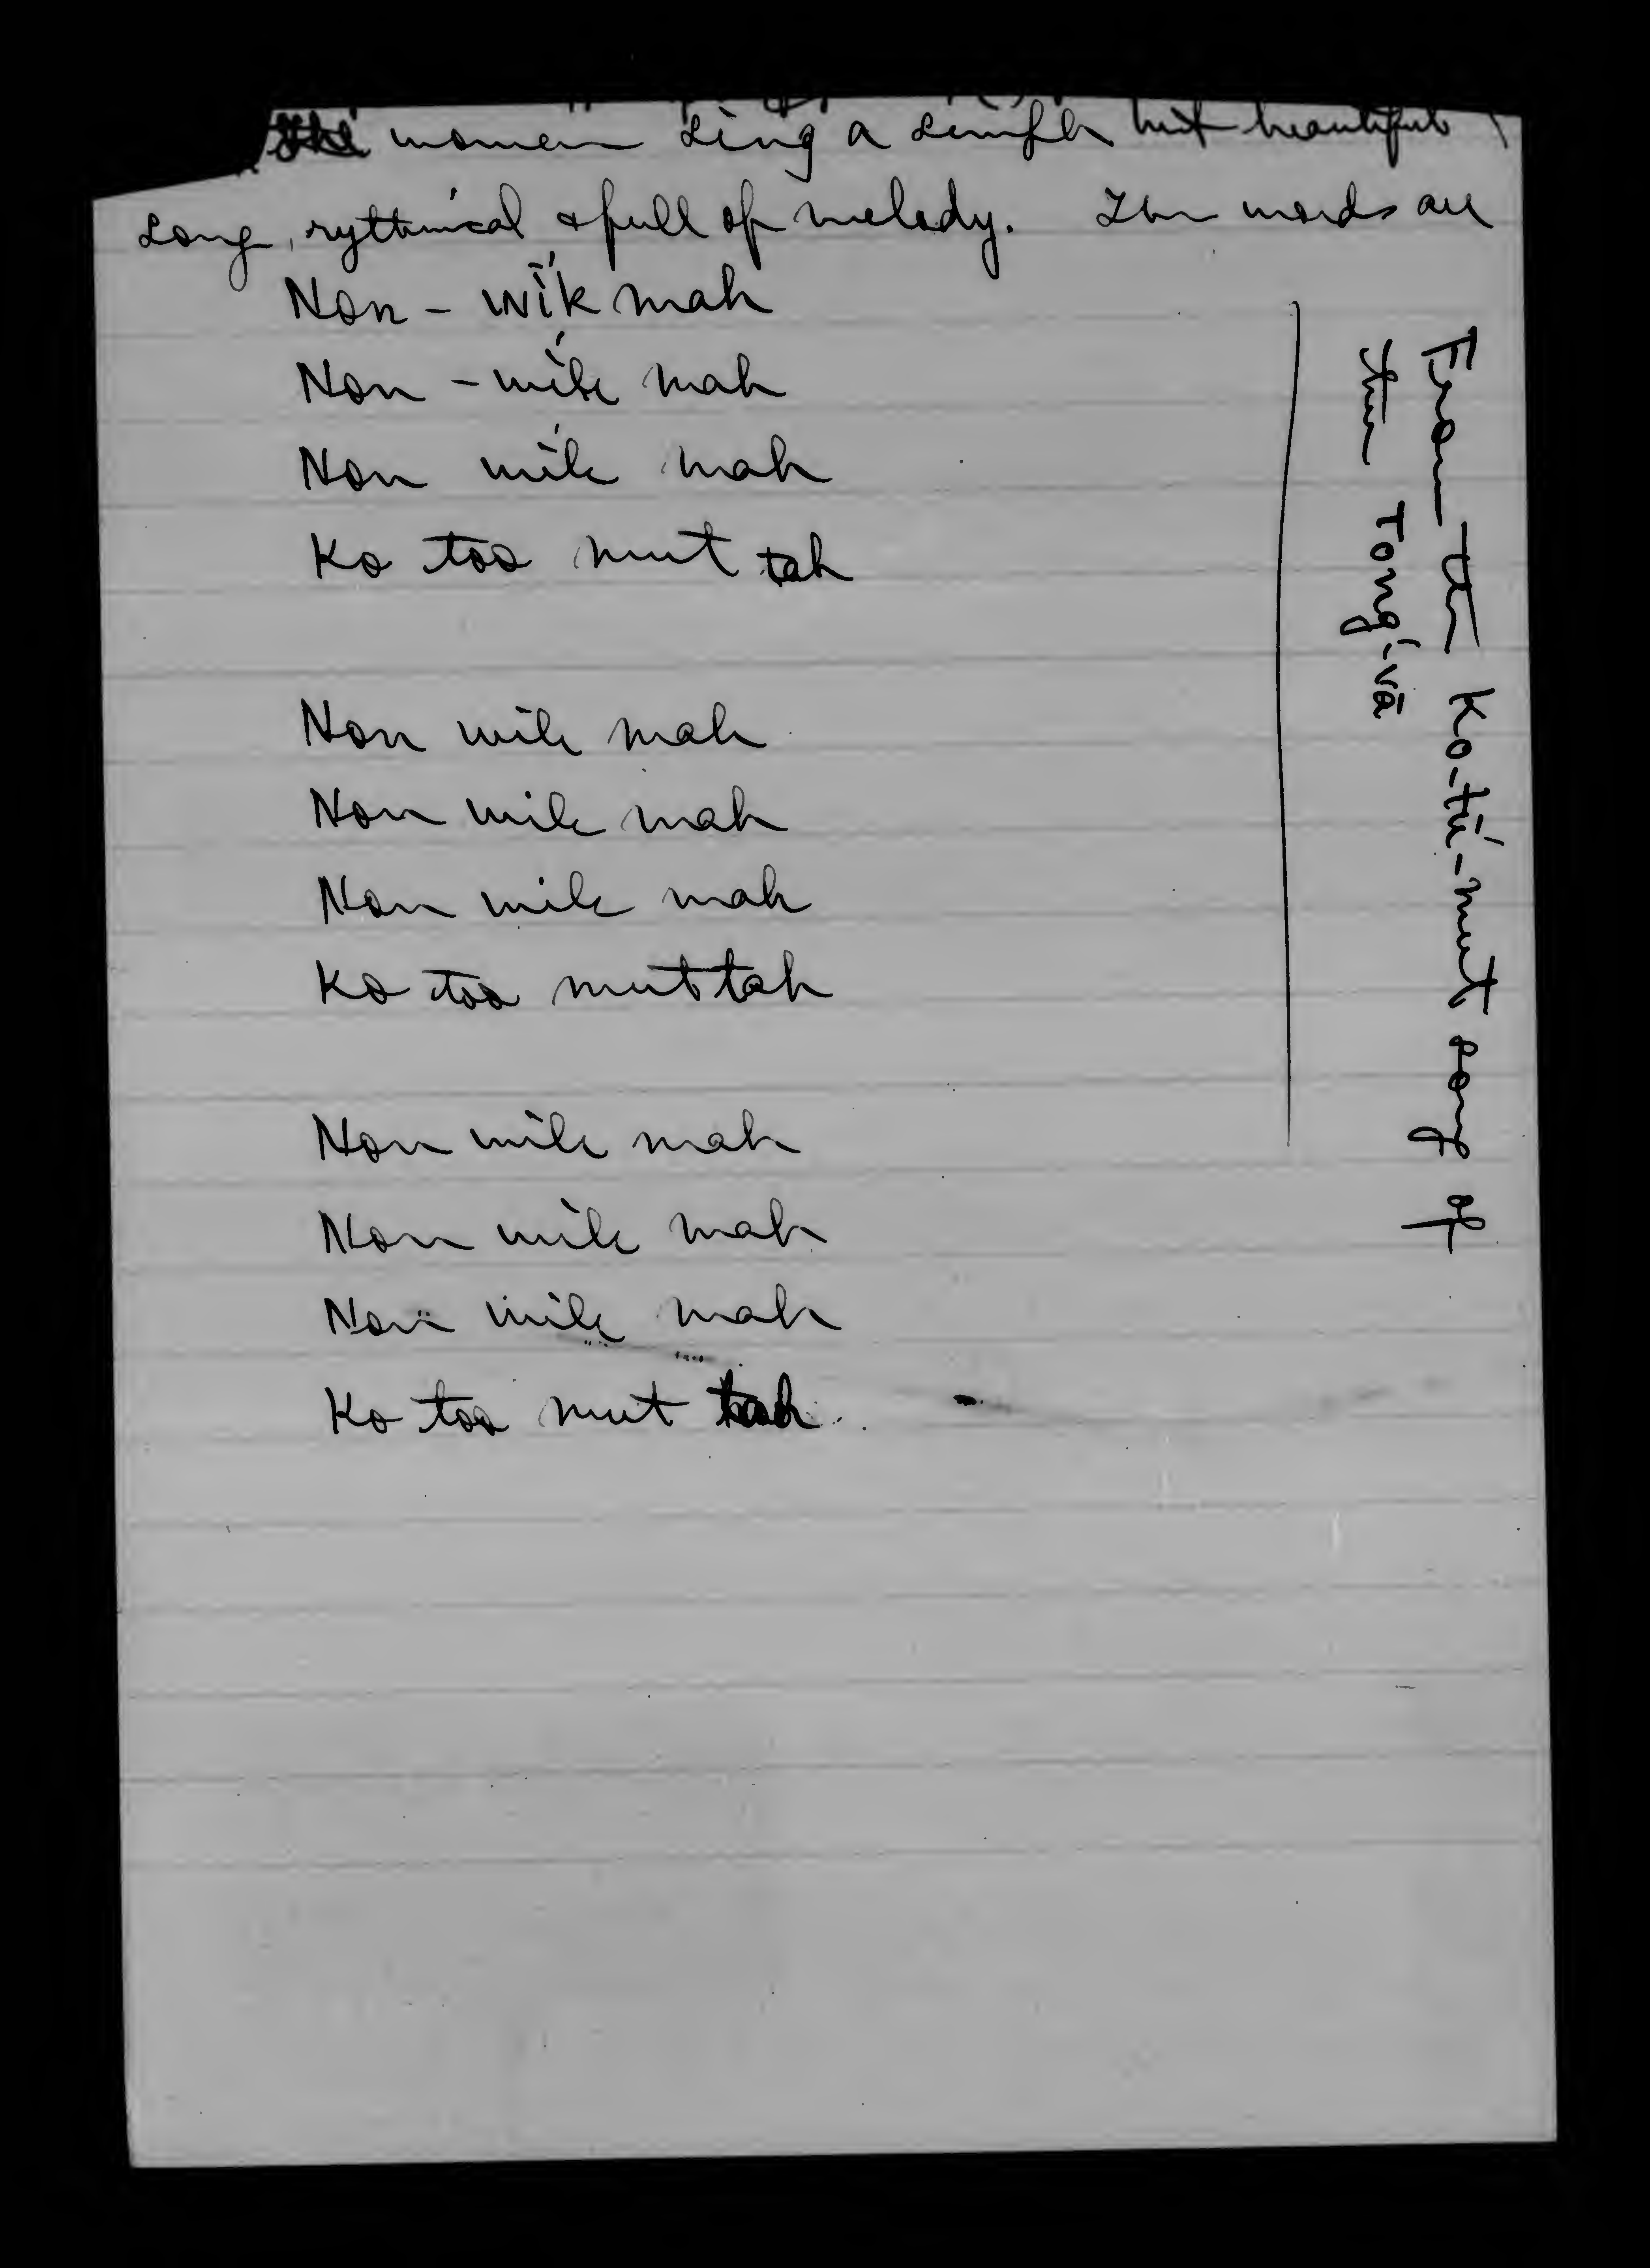 the women sing a simple but beautiful
song, rythmical & full of melody. The words are
Non - wĭk' mah
Non - wik' mah
Non wik' mah
Ko too mut tah
Non wik mah
Non wik mah
Non wik mah
Ko too mut tah
Non wik mah
Non wik mah
Non wik mah
Ko too mut tah
From the Ko-tū́-mut song of
the Tong'-vā